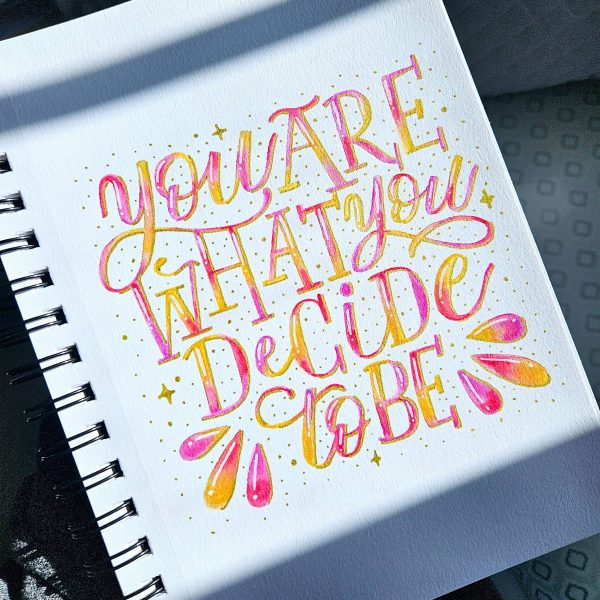 you ARE
WHAT you
DeCiDe
to BE